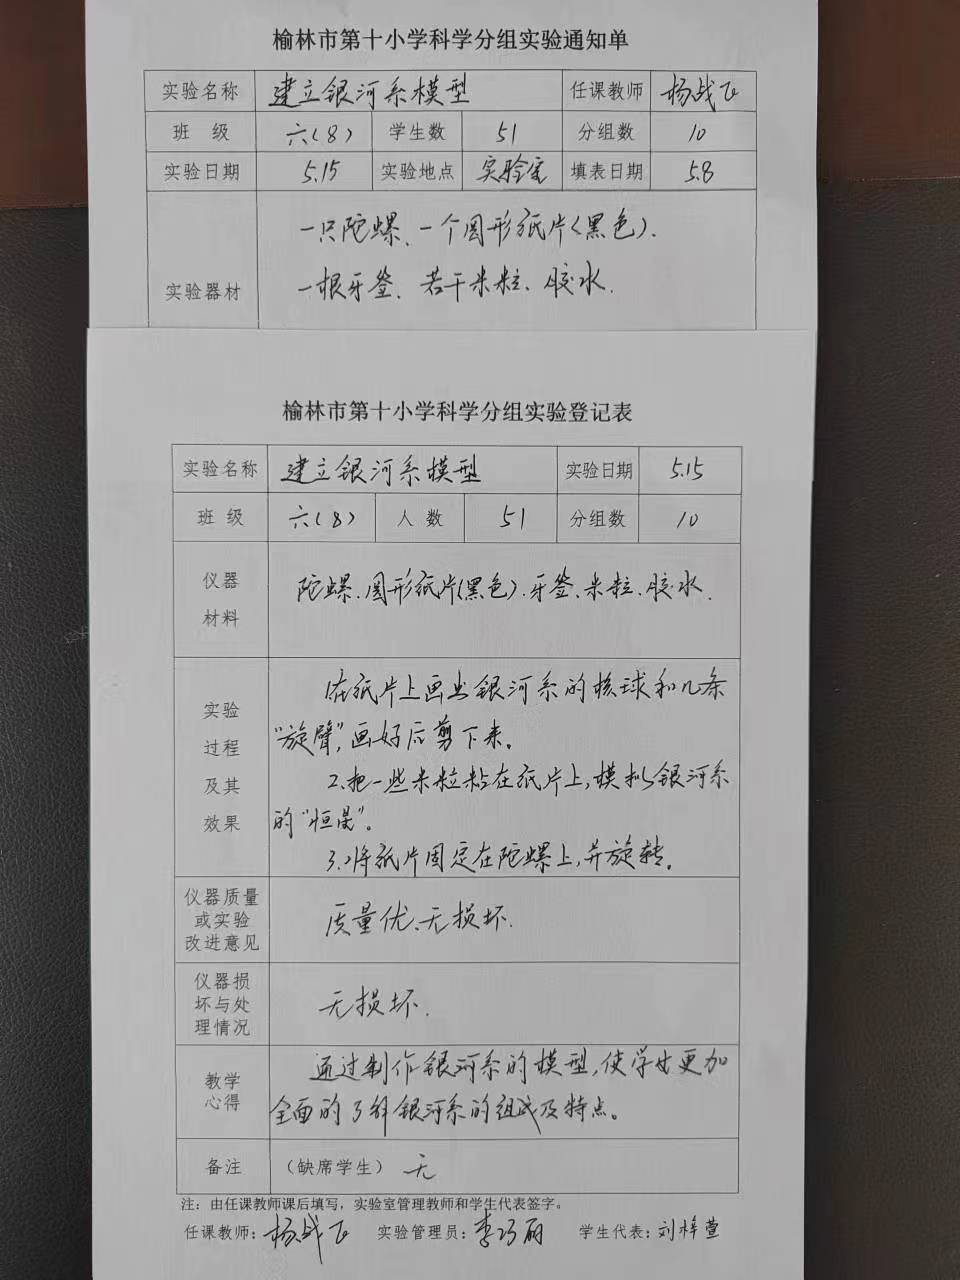 榆林市第十小学科学分组实验通知单
实验名称 建立银河系模型 任课教师 杨战飞
班 级 六(8) 学生数 51 分组数 10
实验日期 5.15 实验地点 实验室 填表日期 5.8
一只陀螺、一个圆形纸片(黑色).
实验器材 一根牙签、若干米粒、胶水.
榆林市第十小学科学分组实验登记表
实验名称 建立银河系模型 实验日期 5.15
班 级 六(8) 人 数 51 分组数 10
仪器
材料
陀螺、圆形纸片(黑色)、牙签、米粒、胶水.
实验
过程
及其
效果
1.在纸片上画出银河系的核球和几条
“旋臂”,画好后剪下来。
2.把一些米粒粘在纸片上,模拟银河系
的“恒星”。
3.将纸片固定在陀螺上,并旋转。
仪器质量
或实验
改进意见
质量优、无损坏.
仪器损
坏与处
理情况
无损坏.
教学
心得
通过制作银河系的模型,使学生更加
全面的了解银河系的组成及特点。
备注 (缺席学生) 无
注:由任课教师课后填写,实验室管理教师和学生代表签字。
任课教师:杨战飞 实验管理员:李巧丽 学生代表:刘梓萱